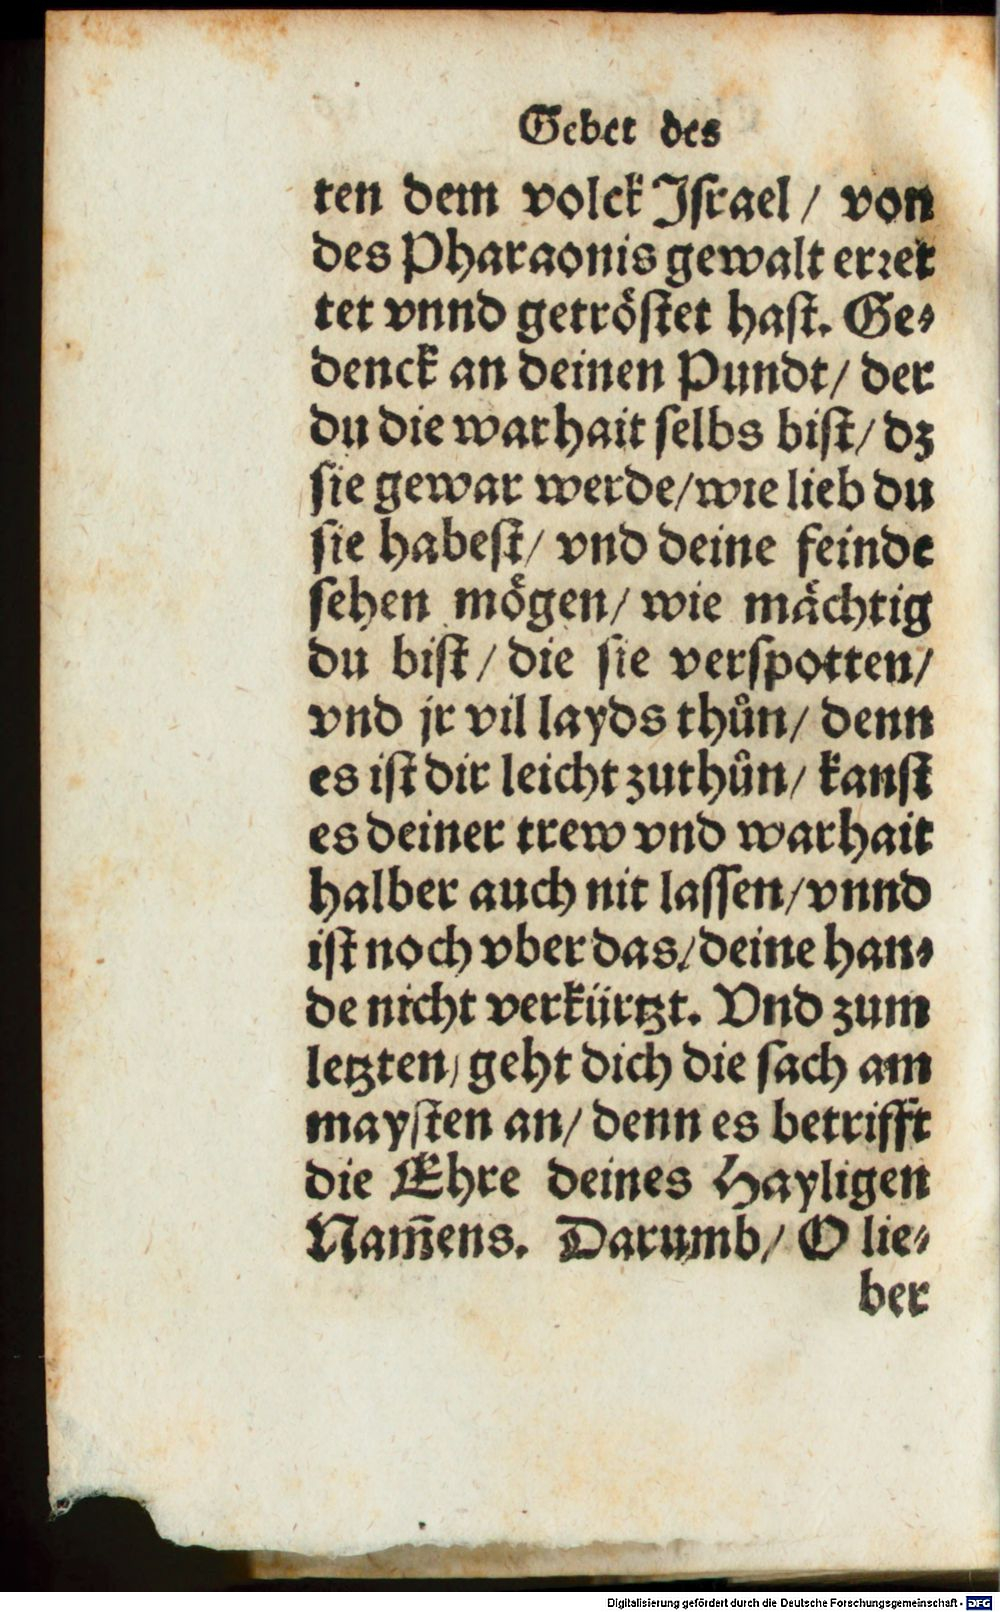 Gebet des
ten dem volck Israel / von
des Pharaonis gewalt erret
tet vnnd getröstet hast. Ge⸗
denck an deinen Pundt / der
du die warhait selbs bist / dz
sie gewar werde / wie lieb du
sie habest / vnd deine feinde
sehen mögen / wie mächtig
du bist / die sie verspotten /
vnd jr vil layds thůn / denn
es ist dir leicht zuthůn / kanst
es deiner trew vnd warhait
halber auch nit lassen / vnnd
ist noch vber das / deine han⸗
de nicht verkürtzt. Vnd zum
letzten / geht dich die sach am
maysten an / denn es betrifft
die Ehre deines Hayligen
Nam̅ens. Darumb / O lie⸗
ber
Digitalisierung gefördert durch die Deutsche Forschungsgemeinschaft - DFG